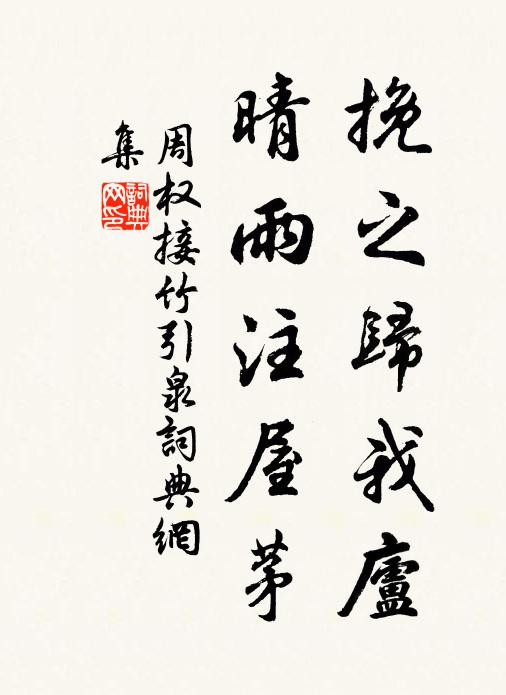 挽之歸我廬
晴雨注屋茅
周权接竹引泉詞典網
集
詞典
网印